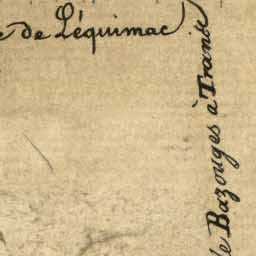 e de Léquimac
de Bazouges à Trans